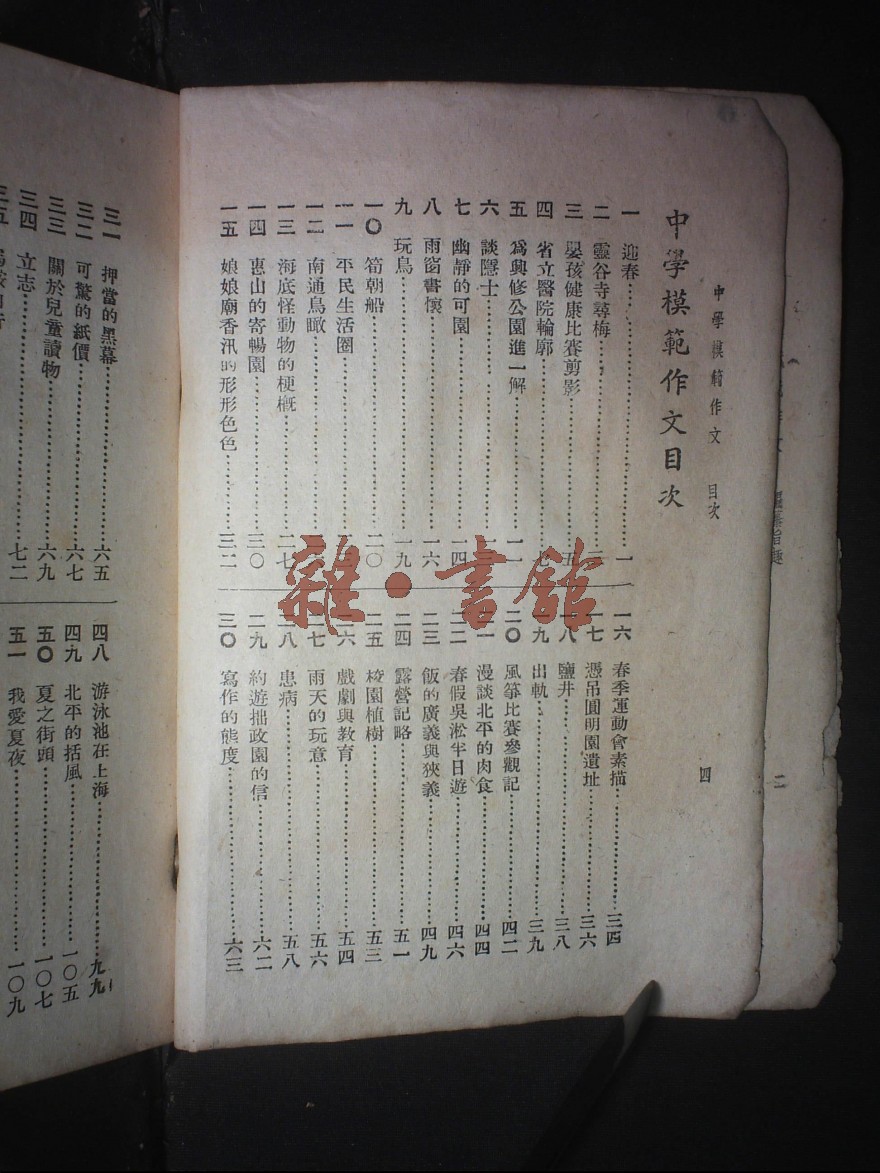 中學模範作文 目次
四
中學模範作文目次
一 迎春 一
二 靈谷寺尋梅
三 嬰孩健康比賽剪影 五
四 省立醫院輪廓 七
五 爲興修公園進一解 一一
六 談隱士
七 幽靜的可園 一四
八 雨窗書懷 一六
九 玩鳥 一九
一〇 筍朝船 二〇
一一 平民生活圈
一二 南通鳥瞰
一三 海底怪動物的梗概 二七
一四 惠山的寄暢園 三〇
一五 娘娘廟香汛的形形色色 三二
一六 春季運動會素描 三四
一七 憑吊圓明園遺址 三六
一八 鹽井 三八
一九 出軌 三九
二〇 風箏比賽參觀記 四二
二一 漫談北平的肉食 四四
二二 春假吳淞半日遊 四六
二三 飯的廣義與狹義 四九
二四 露營記略 五一
二五 校園植樹 五三
二六 戲劇與教育 五四
二七 雨天的玩意 五六
二八 患病 五八
二九 約遊拙政園的信 六二
三〇 寫作的態度 六三
三一 押當的黑幕 六五
三二 可驚的紙價 六七
三三 關於兒童讀物 六九
三四 立志 七二
三五
四八 游泳池在上海 九九
四九 北平的括風 一〇五
五〇 夏之街頭 一〇七
五一 我愛夏夜 一〇九
二
雜·書館